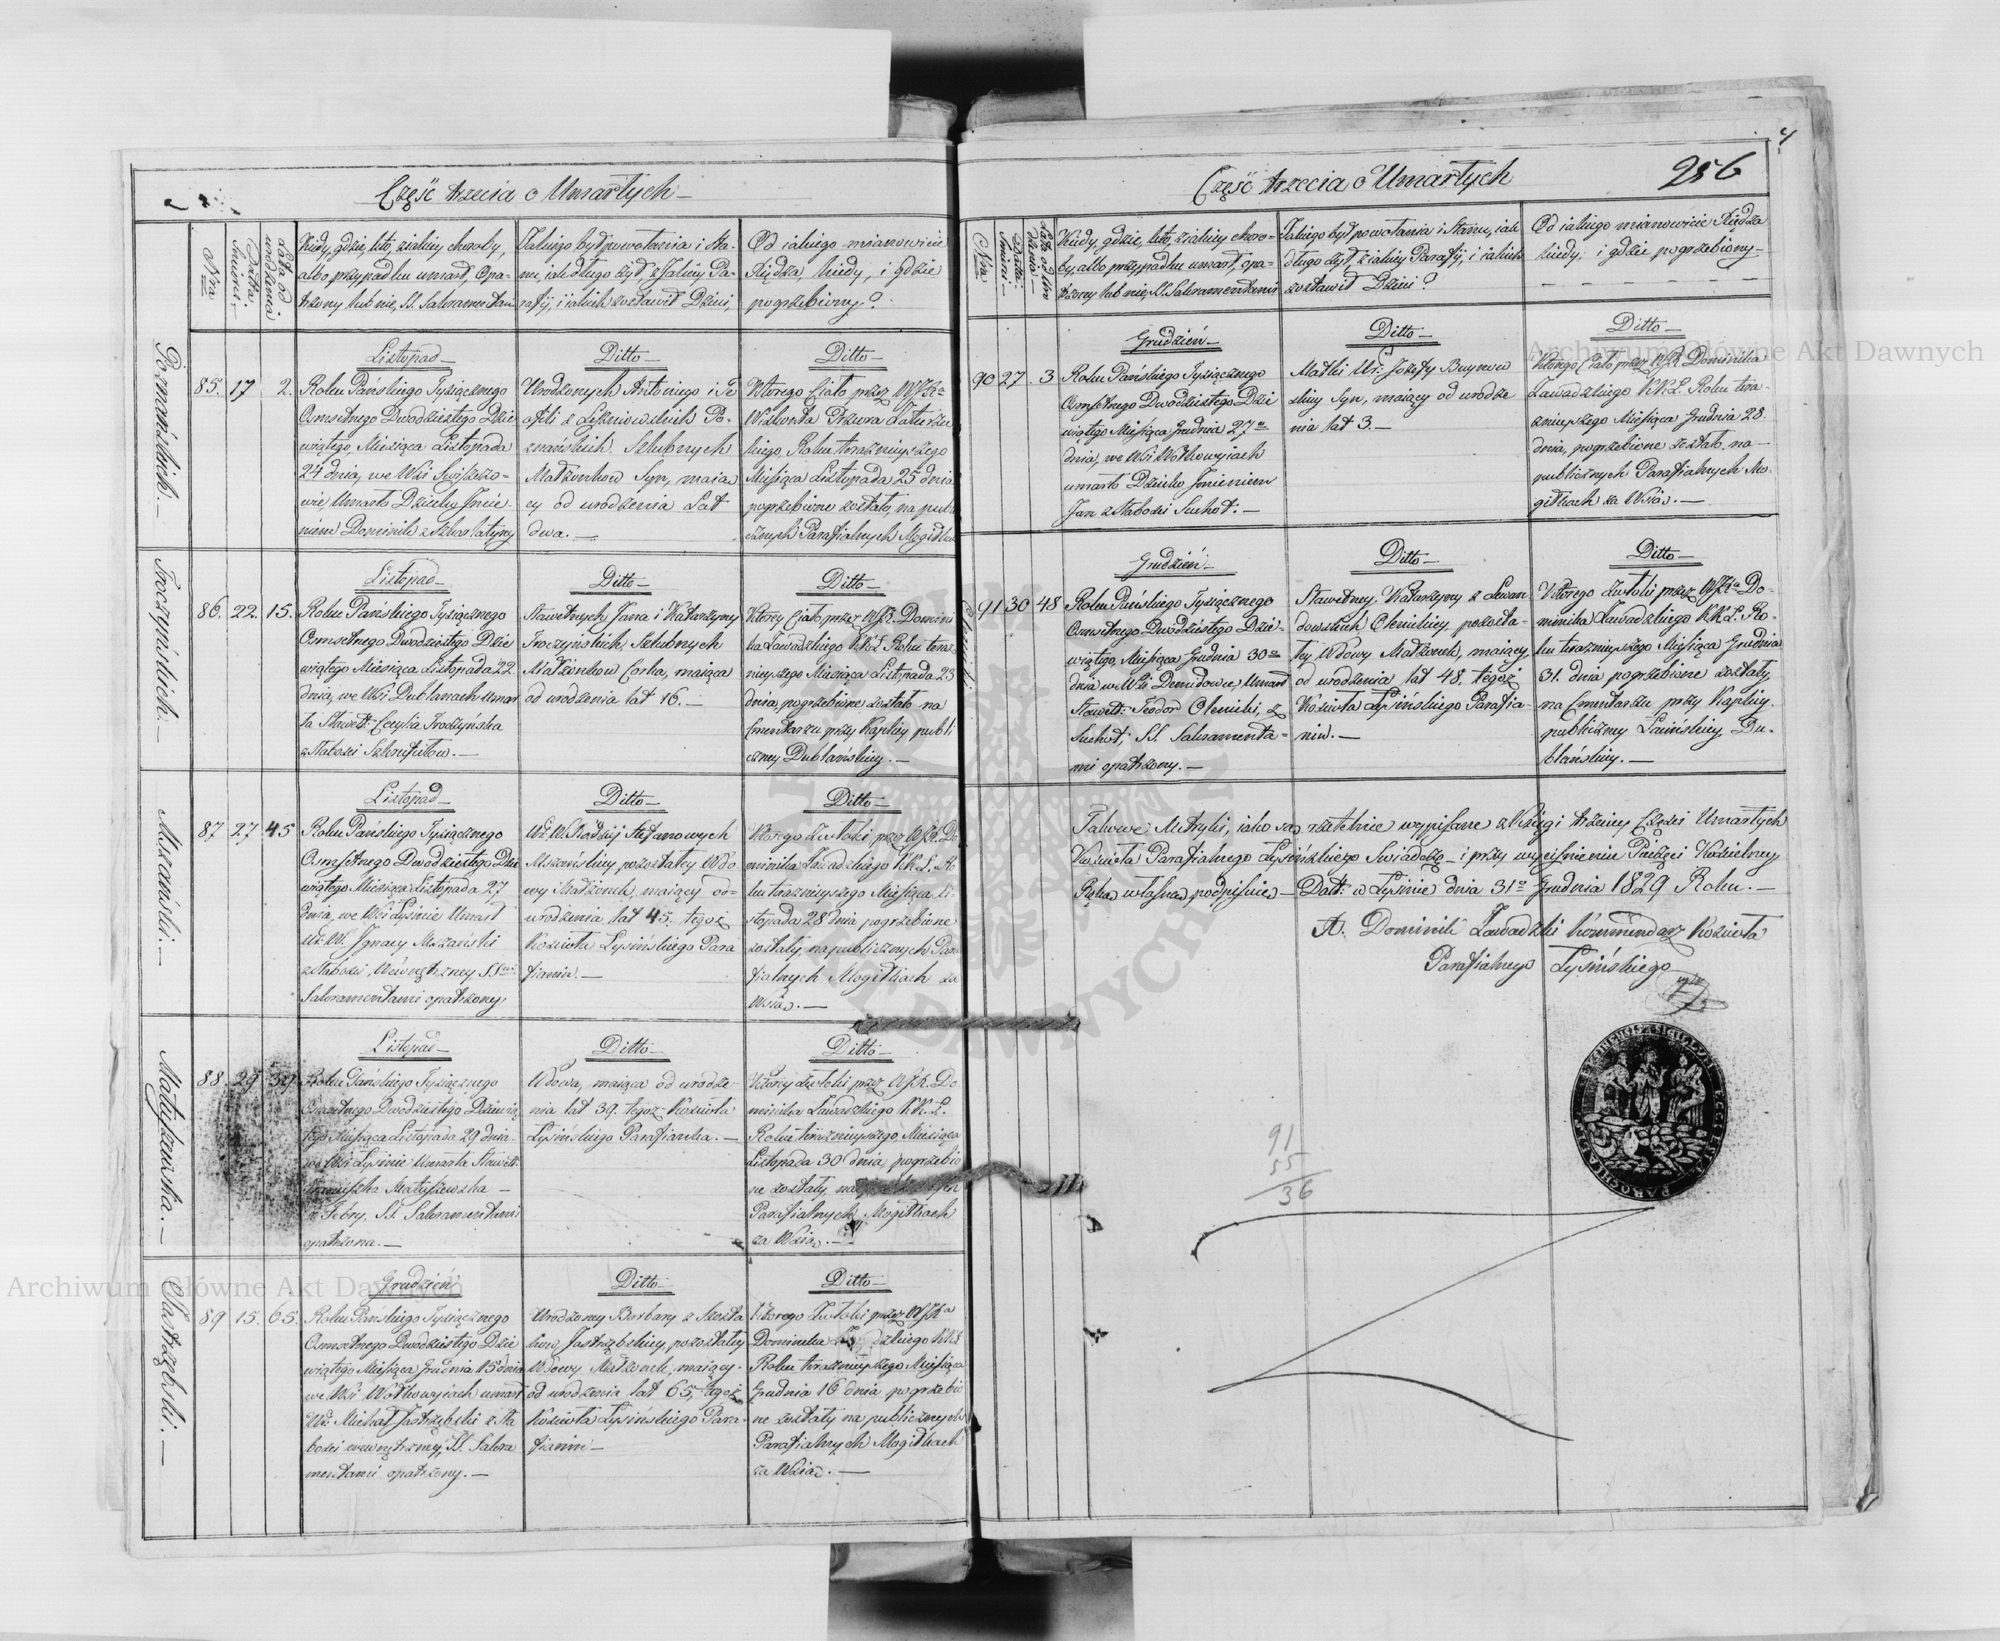 Część trzecia o Umarłych
Nro
Datta Śmierci
Lata od urodzenia
Kiedy, gdzie, kto, z iakiey choroby,
albo przypadku umarł, Opa-
trzony lub nie, SS. Sakramentami
Jakiego był powołania i Sta-
nu, iak długo żył, z Jakiey Pa-
rafij, i iakich zostawił Dzieci,
Od iakiego mianowicie
Xiędza kiedy, i gdzie
pogrzebiony?
Poznańskich.
85. 17 2.
Listopad
Roku Pańskiego Tysiącznego
Osmsetnego Dwódziestego Dzie
wiątego, Miesiąca Listopada
24 dnia, we Wsi
Umarło Dziecko Imie-
niem Dominik z Szkarlatyny
Ditto
Urodzonych Antoniego i Te
ofili z Leśniowskich Po-
znańskich Szlubnych
Małżonkow Syn, maią
cy od urodzenia Lat
dwa.
Ditto
Ktorego Ciało przez WJXa
Wiskonta Przeora Zaturze
kiego, Roku teraznieyszego
Miesiąca Listopada 25 dnia
pogrzebione zostało, na publi
cznych Parafialnych Mogiłkach
Troczyńskich.
86. 22. 15.
Listopad
Roku Pańskiego Tysiącznego
Osmsetnego Dwodziestego Dzie
wiątego Miesiąca Listopada 22
dnia, we Wsi Dublanach umar
ła Sławet: Cecylia Troczyńska
z słabości Szkrofułow.
Ditto
Sławetnych Jana i Katarzyny
Troczyńskich, Szlubnych
Małżonkow Corka, maiąca
od urodzenia lat 16.
Ditto
Ktorey Ciało przez WJX. Domini
ka Zawadzkiego KKŁ Roku teraz
nieyszego Miesiąca Listopada 23
dnia, pogrzebione zostało na
Cmentarzu przy Kaplicy publi
czney Dublańskiey.
Mszański.
87 27 45
Listopad
Roku Pańskiego Tysiącznego
Osmsetnego Dwodziestego Dzie
wiątego Miesiąca Listopada 27
dnia, we Wsi Łysinie Umarł
Ur: W. Ignacy Mszański
z słabości Wewnętrzney SSmi
Sakramentami opatrzony
Ditto
Ur: W. Stefanowych
Mszańskiey pozostałey Wdo
wy Małżonek, maiący od
urodzenia lat 45. tegoż
Kościoła Łysińskiego Para
fianin.
Ditto
Ktorego Zwłoki przez WJX. Do
minika Zawadzkiego KKŁ. Ro
ku teraznieyszego Miesiąca Li
stopada 28 dnia pogrzebione
zostały, na publicznych Para
fialnych Mogiłkach za
Wsią.
Matyszewska.
88. 29 39
Listopad
Roku Pańskiego Tysiącznego
Osmsetnego Dwodziestego Dziewią
tego Miesiąca Listopada 29 dnia
we Wsi Łysinie Umarła Sławet:
Franciszka Matyszewska
z Febry, SS. Sakramentami
opatrzona.
Ditto
Wdowa, maiąca od urodze-
nia lat 39. tegoż Kościoła
Łysińskiego Parafianka.
Ditto
Ktorey Zwłoki przez WJX. Do
minika Zawadzkiego KK.Ł.
Roku teraznieyszego Miesiąca
Listopada 30 dnia, pogrzebio
ne zostały, na
Parafialnych Mogiłkach
za Wsią.
Jastrzębski.
89. 15. 65.
Grudzień
Roku Pańskiego Tysiącznego
Osmsetnego Dwodziestego Dzie
wiątego Miesiąca Grudnia 15 dnia
we Wsi Wołkowyiach umarł
Ur: Michał Jastrzębski z sła
bości wewnętrzney, SS. Sakra
mentami opatrzony.
Ditto
Urodzoney Barbary z Szosta
kow Jastrzębskiey, pozostałey
Wdowy Małżonek, maiący
od urodzenia lat 65, tegoż
Kościoła Łysińskiego Para-
fianin
Ditto
Ktorego Zwłoki przez WJXa
Dominika Zawadzkiego KKŁ
Roku teraznieyszego Miesiąca
Grudnia 16 dnia pogrzebio
ne zostały na publicznych
Parafialnych Mogiłkach
za Wsią.
Część trzecia o Umarłych
256
Nro
Datta Śmierci
Lata od uro dzenia
Kiedy, gdzie, kto, z iakiey choro-
by, albo przypadku umarł, opa-
trzony lub nie, SS. Sakramentami
Jakiego był powołania i Stanu, iak
długo żył, z iakiey Parafij, i iakich
zostawił Dzieci?
Od iakiego mianowicie Xiędza
kiedy, i gdzie pogrzebiony
90 27. 3
Grudzień
Roku Pańskiego Tysiącznego
Osmsetnego Dwodziestego Dzie
wiątego Miesiąca Grudnia 27o
dnia, we Wsi Wołkowyiach
umarło Dziecko Imieniem
Jan z słabości Suchot.
Ditto
Matki Ur: Jozefy Buynow
skiey Syn, maiący od urodze
nia lat 3.
Ditto
Ktorego Ciało przez WJX. Dominika
Zawadzkiego KKŁ. Roku tera-
znieyszego Miesiąca Grudnia 28.
dnia, pogrzebione zostało, na
publicznych Parafialnych Mo-
giłkach za Wsią.
Olenicki.
91 30 48
Grudzień
Roku Pańskiego Tysiącznego
Osmsetnego Dwodziestego Dzie-
wiątego, Miesiąca Grudnia 30go
dnia w Wsi Demidowce, Umarł
Sławett: Teodor Olenicki, z
Suchot, SS. Sakramenta-
mi opatrzony.
Ditto
Sławetney Katarzyny z Lewan-
dowskich Olenickiey, pozosta-
łey Wdowy Małżonek, maiący
od urodzenia lat 48. tegoż
Kościoła Łysińskiego Parafia-
nin.
Ditto
Ktorego Zwłoki przez WJXa Do-
minika Zawadzkiego KKŁ. Ro-
ku teraznieyszego Miesiąca Grudnia
31. dnia pogrzebione zostały,
na Cmentarzu przy Kaplicy
publiczney Łacińskiey Du-
blańskiey.
Takowe Metryki, iako są rzetelnie wypisane z Xięgi trzeciey Części Umarłych
Kościoła Parafialnego Łysińskiego Swiadczę i przy wyciśnieniu Pieczęci Kościelney
Ręką własną podpisuię Datt: w Łysinie dnia 31o Grudnia 1829 Roku.
X. Dominik Zawadzki Kommendarz Kościoła
Parafialnego Łysińskiego
91
55
36
Archiwum Główne Akt Dawnych
Archiwum Główne Akt Dawnych